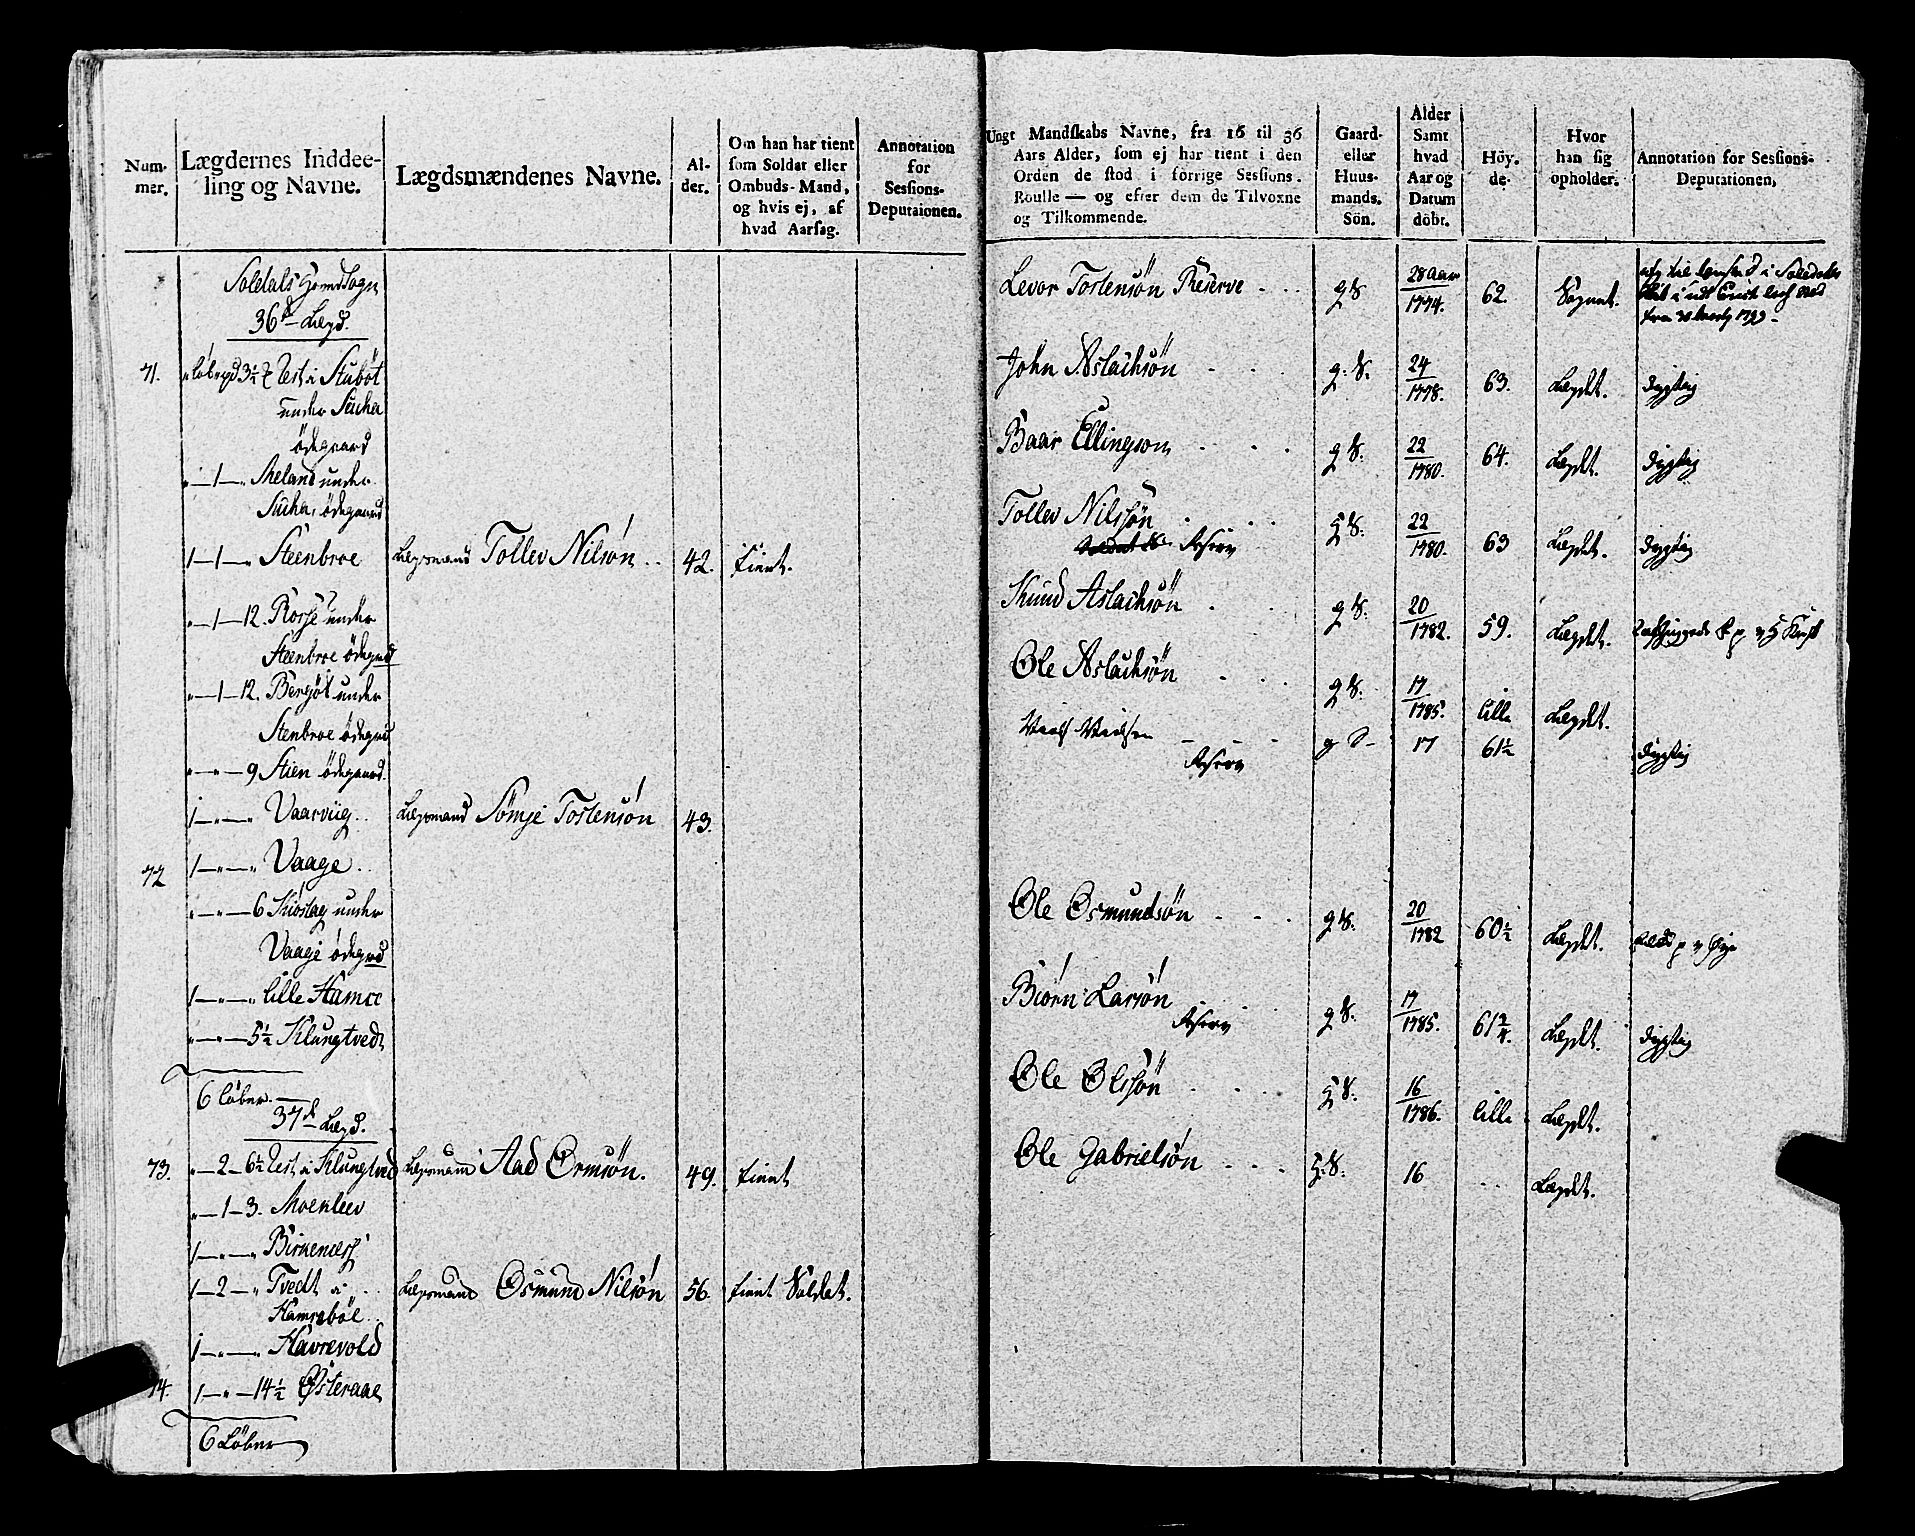 Num-
mer.
Lægdernes Inddee-
ling og Navne.
Lægdsmændenes Navne.
Al-
der.
Om han har tient
som Soldat eller
Ombuds-Mand,
og hvis ej, af
hvad Aarsag.
Annotation
for
Sessions-
Deputaionen.
Soledals Hovedsogn
36te Lægd.
71.
3½ Rest i Stubøt
under
ödegaard
1 Meland under
ödegaard
1 Steenbroe
Lægsmand Tollev Nilsön
42.
tient.
1 12. Rosse under
Steenbroe ödegrd
1 12. Bersöt under
Stenbroe ödegrd
9 Stien ödegaard
1 Vaarviig
Lægsmand Sömje Tostensön
43.
72
1 Vaage
6 under
Vaage ödegrd
1 lille Hamre
5½ Klungtvedt
6 Löber
37te Lægd.
73.
2 6½ Rest i Klungtved
Lægsmand Aad Ormsön.
49.
tient
1 3. Moenleev
1 Birkenæss
1 2 Tvedt i
Hamreböe
Lægsmand Osmund Nilsön
56.
tient Soldat.
1 Havrevold
74.
1 14½ Österaae
6 Löber
Ungt Mandskabs Navne, fra 16 til 36
Aars Alder, som ej har tient i den
Orden de stod i forrige Sessions-
Roulle — og efter dem de Tilvoxne
og Tilkommende.
Gaard-
eller
Huus-
mands.
Sön.
Alder
Samt
hvad
Aar og
Datum
döbt.
Höy.
de.
Hvor
han sig
opholder.
Annotation for Sessions-
Deputationen,
Levor Tostensön Reserve
g S
28 Aar
1774.
62.
Sognet.
John Aslachsön
g. S.
24
1778.
63.
Lægdet.
dygtig
Baar Ellingson
g S.
22
1780.
64.
Lægdet.
dygtig
Tollev Nilssön
Reserv
S.
22
1780.
63
Lægdet.
dygtig
Knud Aslachsön
g S.
20
1782.
59.
Lægdet.
Ole Aslachsön
g S.
17
1785.
lille
Lægdet.
Niels Nielsen
Reserv
g S
17
61½
dygtig
Ole Osmundsön
g S.
20
1782
60½
Lægdet.
Biörn Larsön
Reserv
g S.
17
1785.
61¾
Lægdet.
dygtig
Ole Olssön
S.
16
1786.
lille
Lægdet.
Ole Gabrielsön
S.
16
Lægdet.